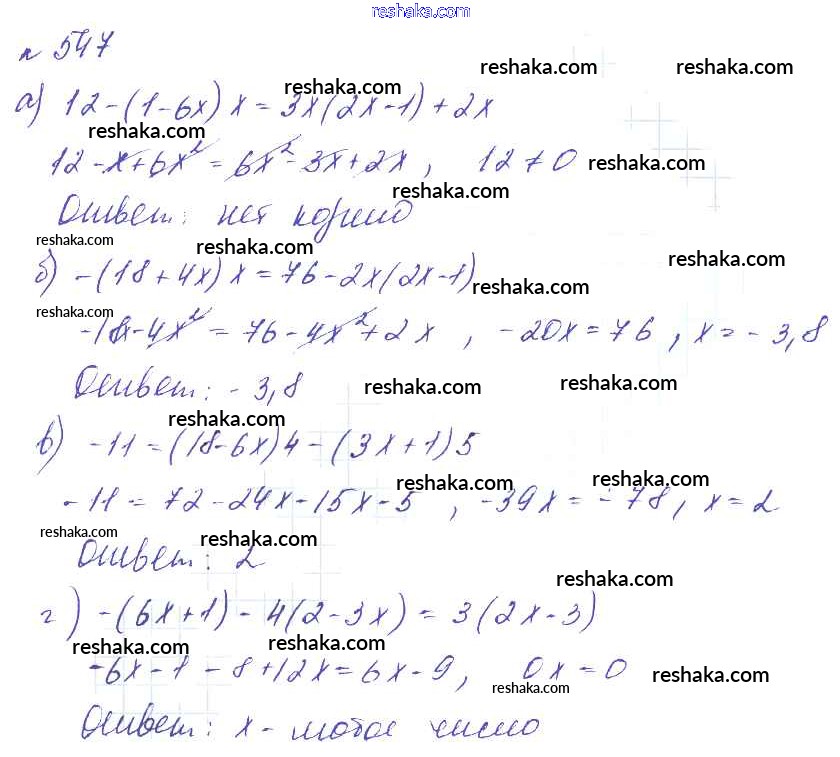 reshaka.com
№ 547
reshaka.com reshaka.com
reshaka.com
а) 12-(1-6x)x=3x(2x-1)+2x
reshaka.com
12-x+6x²=6x²-3x+2x, 12≠0 reshaka.com
reshaka.com
Ответ: нет корней
reshaka.com reshaka.com reshaka.com
б) -(18+4x)x=76-2x(2x-1)
reshaka.com
reshaka.com
-18x-4x²=76-4x²+2x, -20x=76, x=-3,8
Ответ: -3,8 reshaka.com reshaka.com
reshaka.com
в) -11=(18-6x)4-(3x+1)5
reshaka.com reshaka.com
-11=72-24x-15x-5, -39x=-78, x=2
reshaka.com reshaka.com
Ответ: 2
reshaka.com
г) -(6x+1)-4(2-3x)=3(2x-3)
reshaka.com reshaka.com
-6x-1-8+12x=6x-9, 0x=0
reshaka.com reshaka.com
Ответ: x-любое число